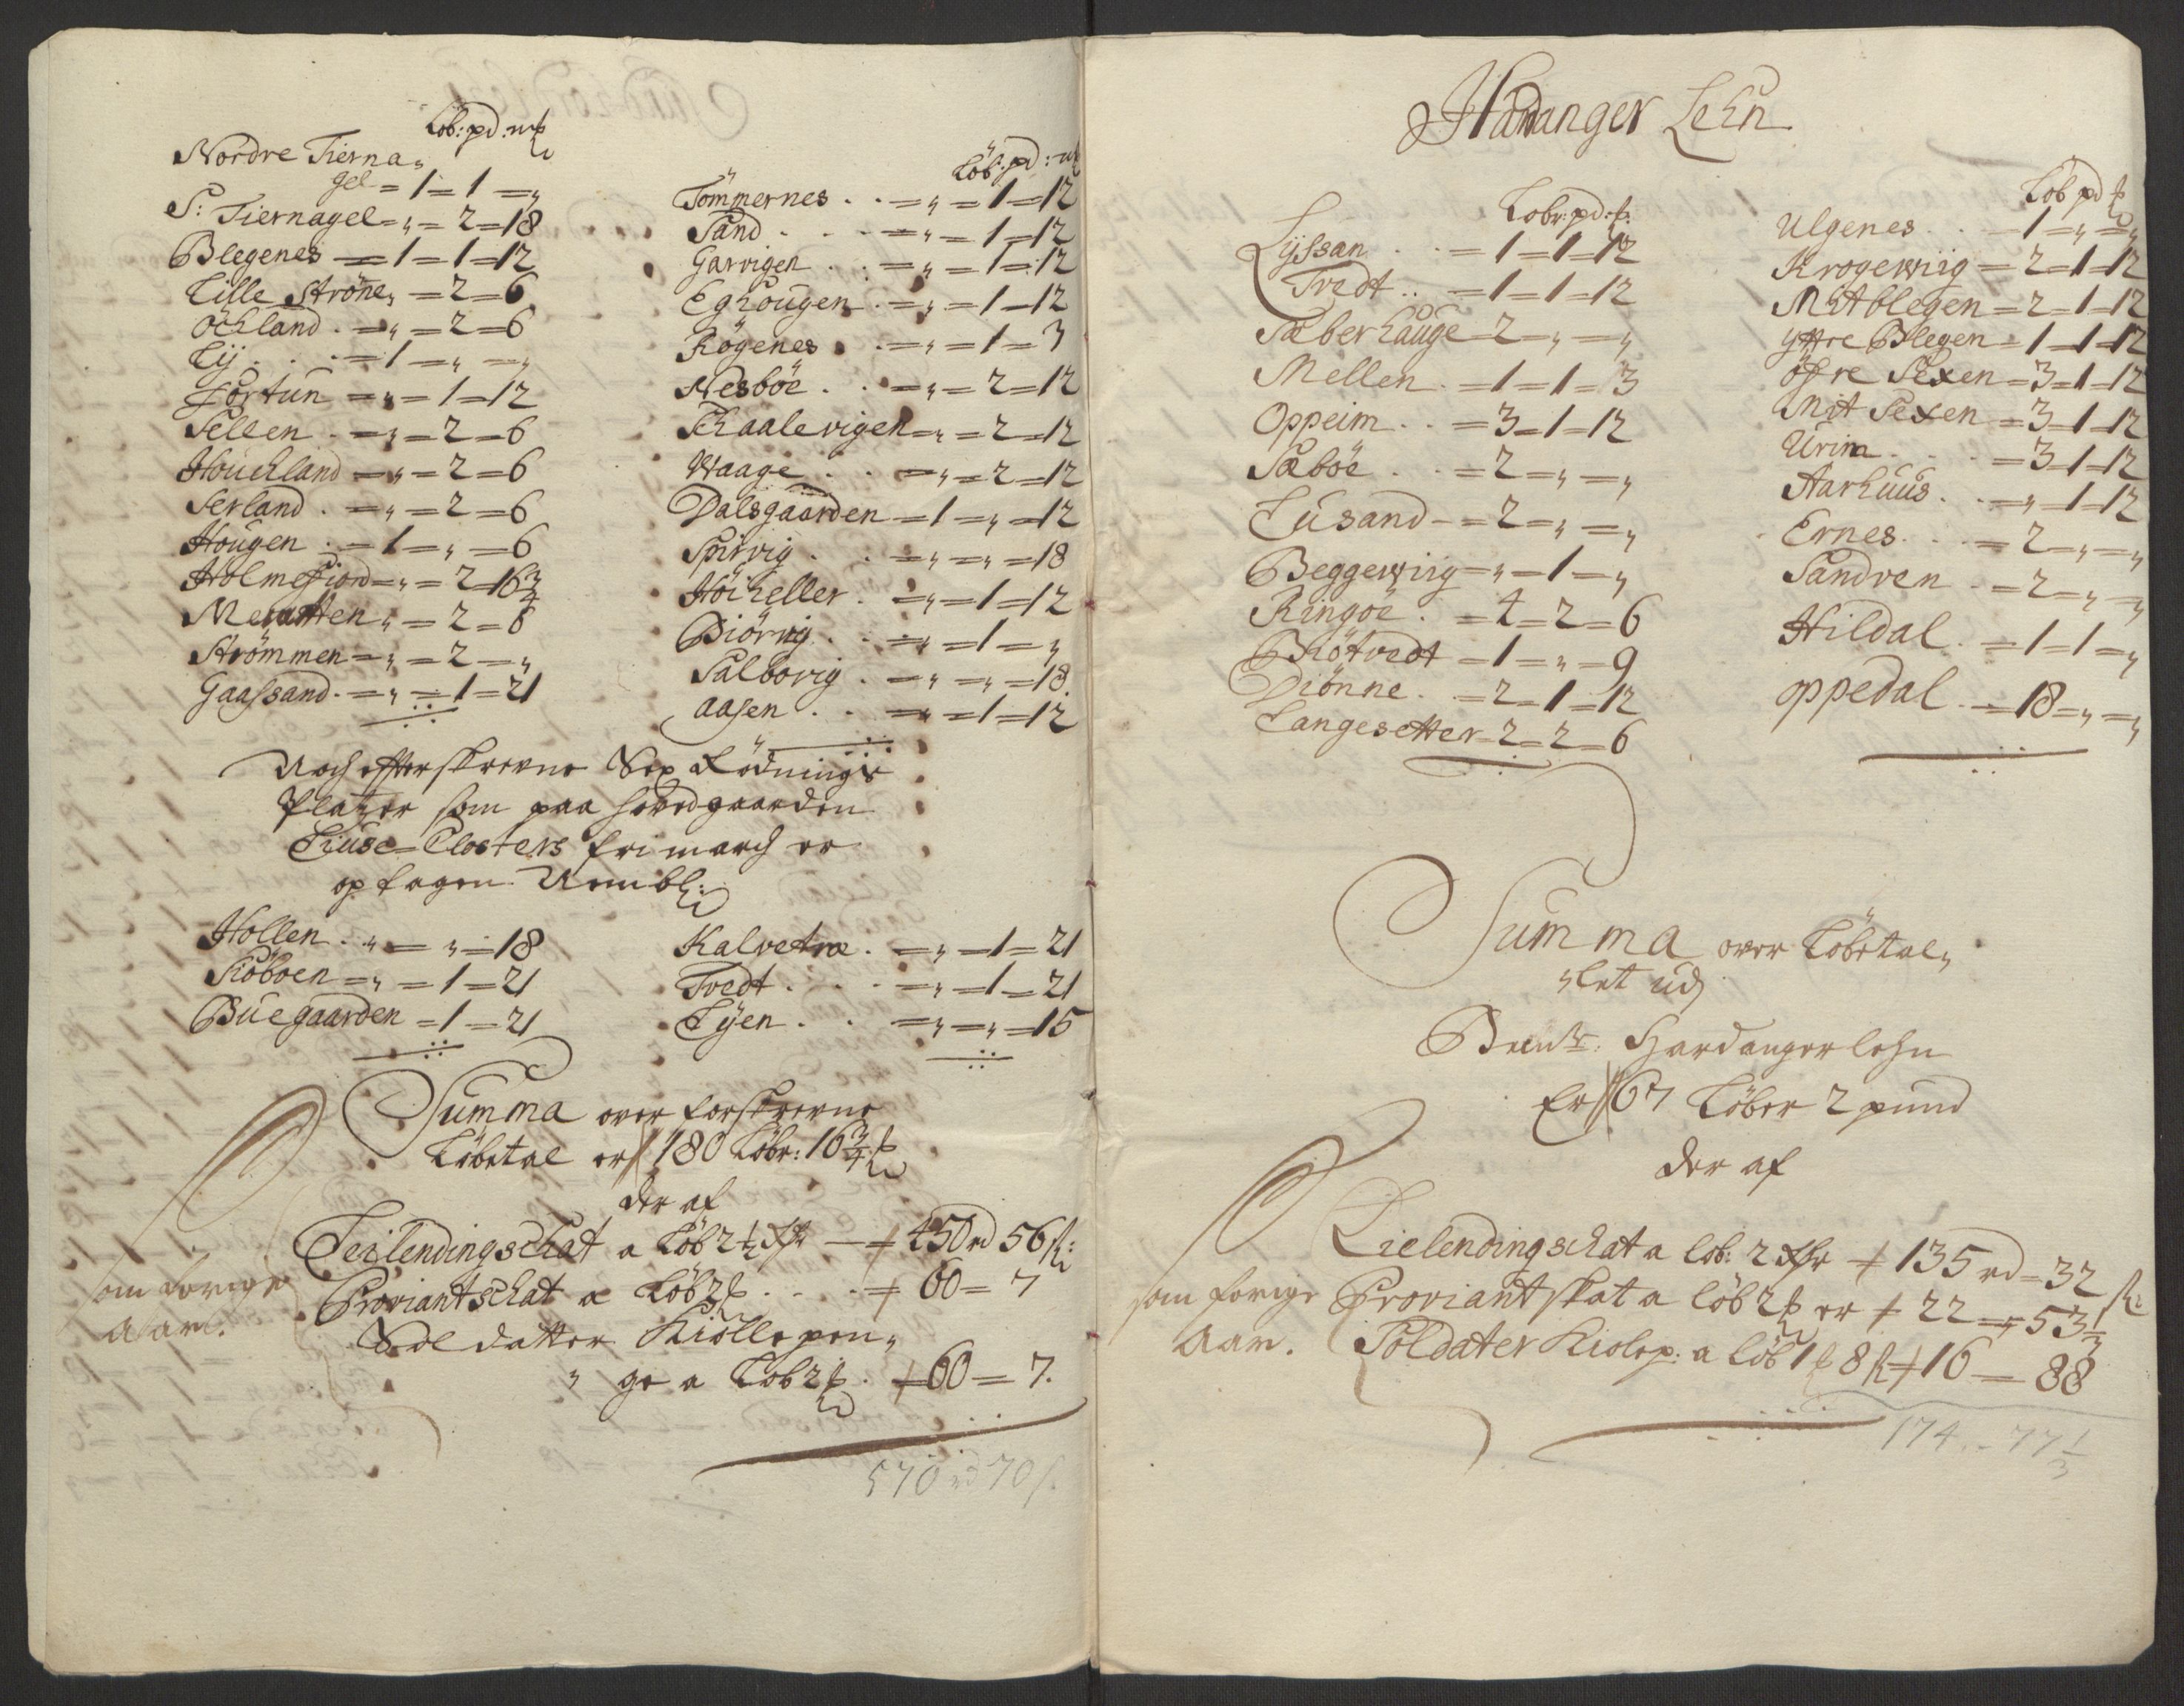 Löb: pd: mk
Nordre Tierna„
gel = 1 = 1 = „
S: Tiernagel = „ = 2 = 18
Blegenes = 1 = 1 = 12
Lille Ströne „ = 2 = 6
Öchland . = „ = 2 = 6
Lij . . . = 1 = „ = „
Fortun = „ = 1 = 12
Sellen . = „ = 2 = 6
Houchland = „ = 2 = 6
Serland . = „ = 2 = 6
Hougen . = 1 = „ = 6
Holmefiord = „ = 2 = 16 3/4
= 2 = 6
Strömmen = „ = 2 = „
Gaassand . = „ = 1 = 21
Löb: pd: mk
Tömmernes . . = „ = 1 = 12
Sand . . . = „ = 1 = 12
Garvigen . : = „ = 1 = 12
Eghougen . = „ = 1 = 12
Rögenes . . = „ = 1 = 3
Nesböe . . = „ = 2 = 12
Skaalevigen = „ = 2 = 12
Waage . . . = „ = 2 = 12
Dalsgaarden = 1 = „ = 12
. = „ = „ = 18
Höiheller . = „ = 1 = 12
Biörvig . . = „ = 1 = „
Salborig . = „ = „ = 18
Aasen . . = „ = 1 = 12
Noch effterskrevne Sex Rödnings
Platzer som paa hovedgaarden
Liuse-Closters frimarch er
optagen Nembl:
Hollen . „ = „ = 18
Skoboen = „ = 1 = 21
Buegaarden = 1 = 21
Kalvetræ . = „ = 1 = 21
Tvedt . . . = „ = 1 = 21
Lyen . . = „ = „ = 15
Summa over forskrevne
Löbetal er 180 Löbr: 16 3/4
der af
Leilendingschat a Löb 2 1/2 = 450 rd 56 s:
Proviantschat a Löb 2 . . . = 60 = 7
Soldatter Kiollepen„
„ ge a Löb 2 . = 60 = 7.
som forige
Aar.
570 rd 70 s
Hardanger Lehn
Löbr: pd:
Lyssan . . = 1 = 1 = 12
Tvedt . . = 1 = 1 = 12
Sæberhauge = 2 = „ = „
Mellen . = 1 = 1 = 3
Oppeim . . = 3 = 1 = 12
Sæböe . . = 2 = „ = „
Lusand = 2 = „ = „
Beggewiig = „ = 1 = „
Ringöe . = 4 = 2 = 6
Blötvedt = 1 = „ = 9
Diönne . = 2 = 1 = 12
Langesetter = 2 = 2 = 6
Löb pd
Ulgenes . . = 1 = „ = „
Krogewiig = 2 = 1 = 12
Mitblegen = 2 = 1 = 12
Yttre Blegen = 1 = 1 = 12
Öfre Sexen = 3 = 1 = 12
Mit Sexen = 3 = 1 = 12
Urim . . . = 3 = 1 = 12
Aarhuus . . = „ = 1 = 12
Ernes . . . = 2 = „ = „
Sandven . = 2 = „ = „
Hildal . = 1 = 1 = „
oppedal . = 18 = „ = „
Summa over Löbetal„
„let udj
Hardanger lehn
Er 67 Löber 2 pund
der af
Lielendingschat a löb: 2 = 135 rd = 32
Proviantskat a löb 2 er = 22 = 53 1/3
Soldater Kiolep: a löb 1 8 = 16 = 88
som forige
Aar.
174 . - 77 1/3